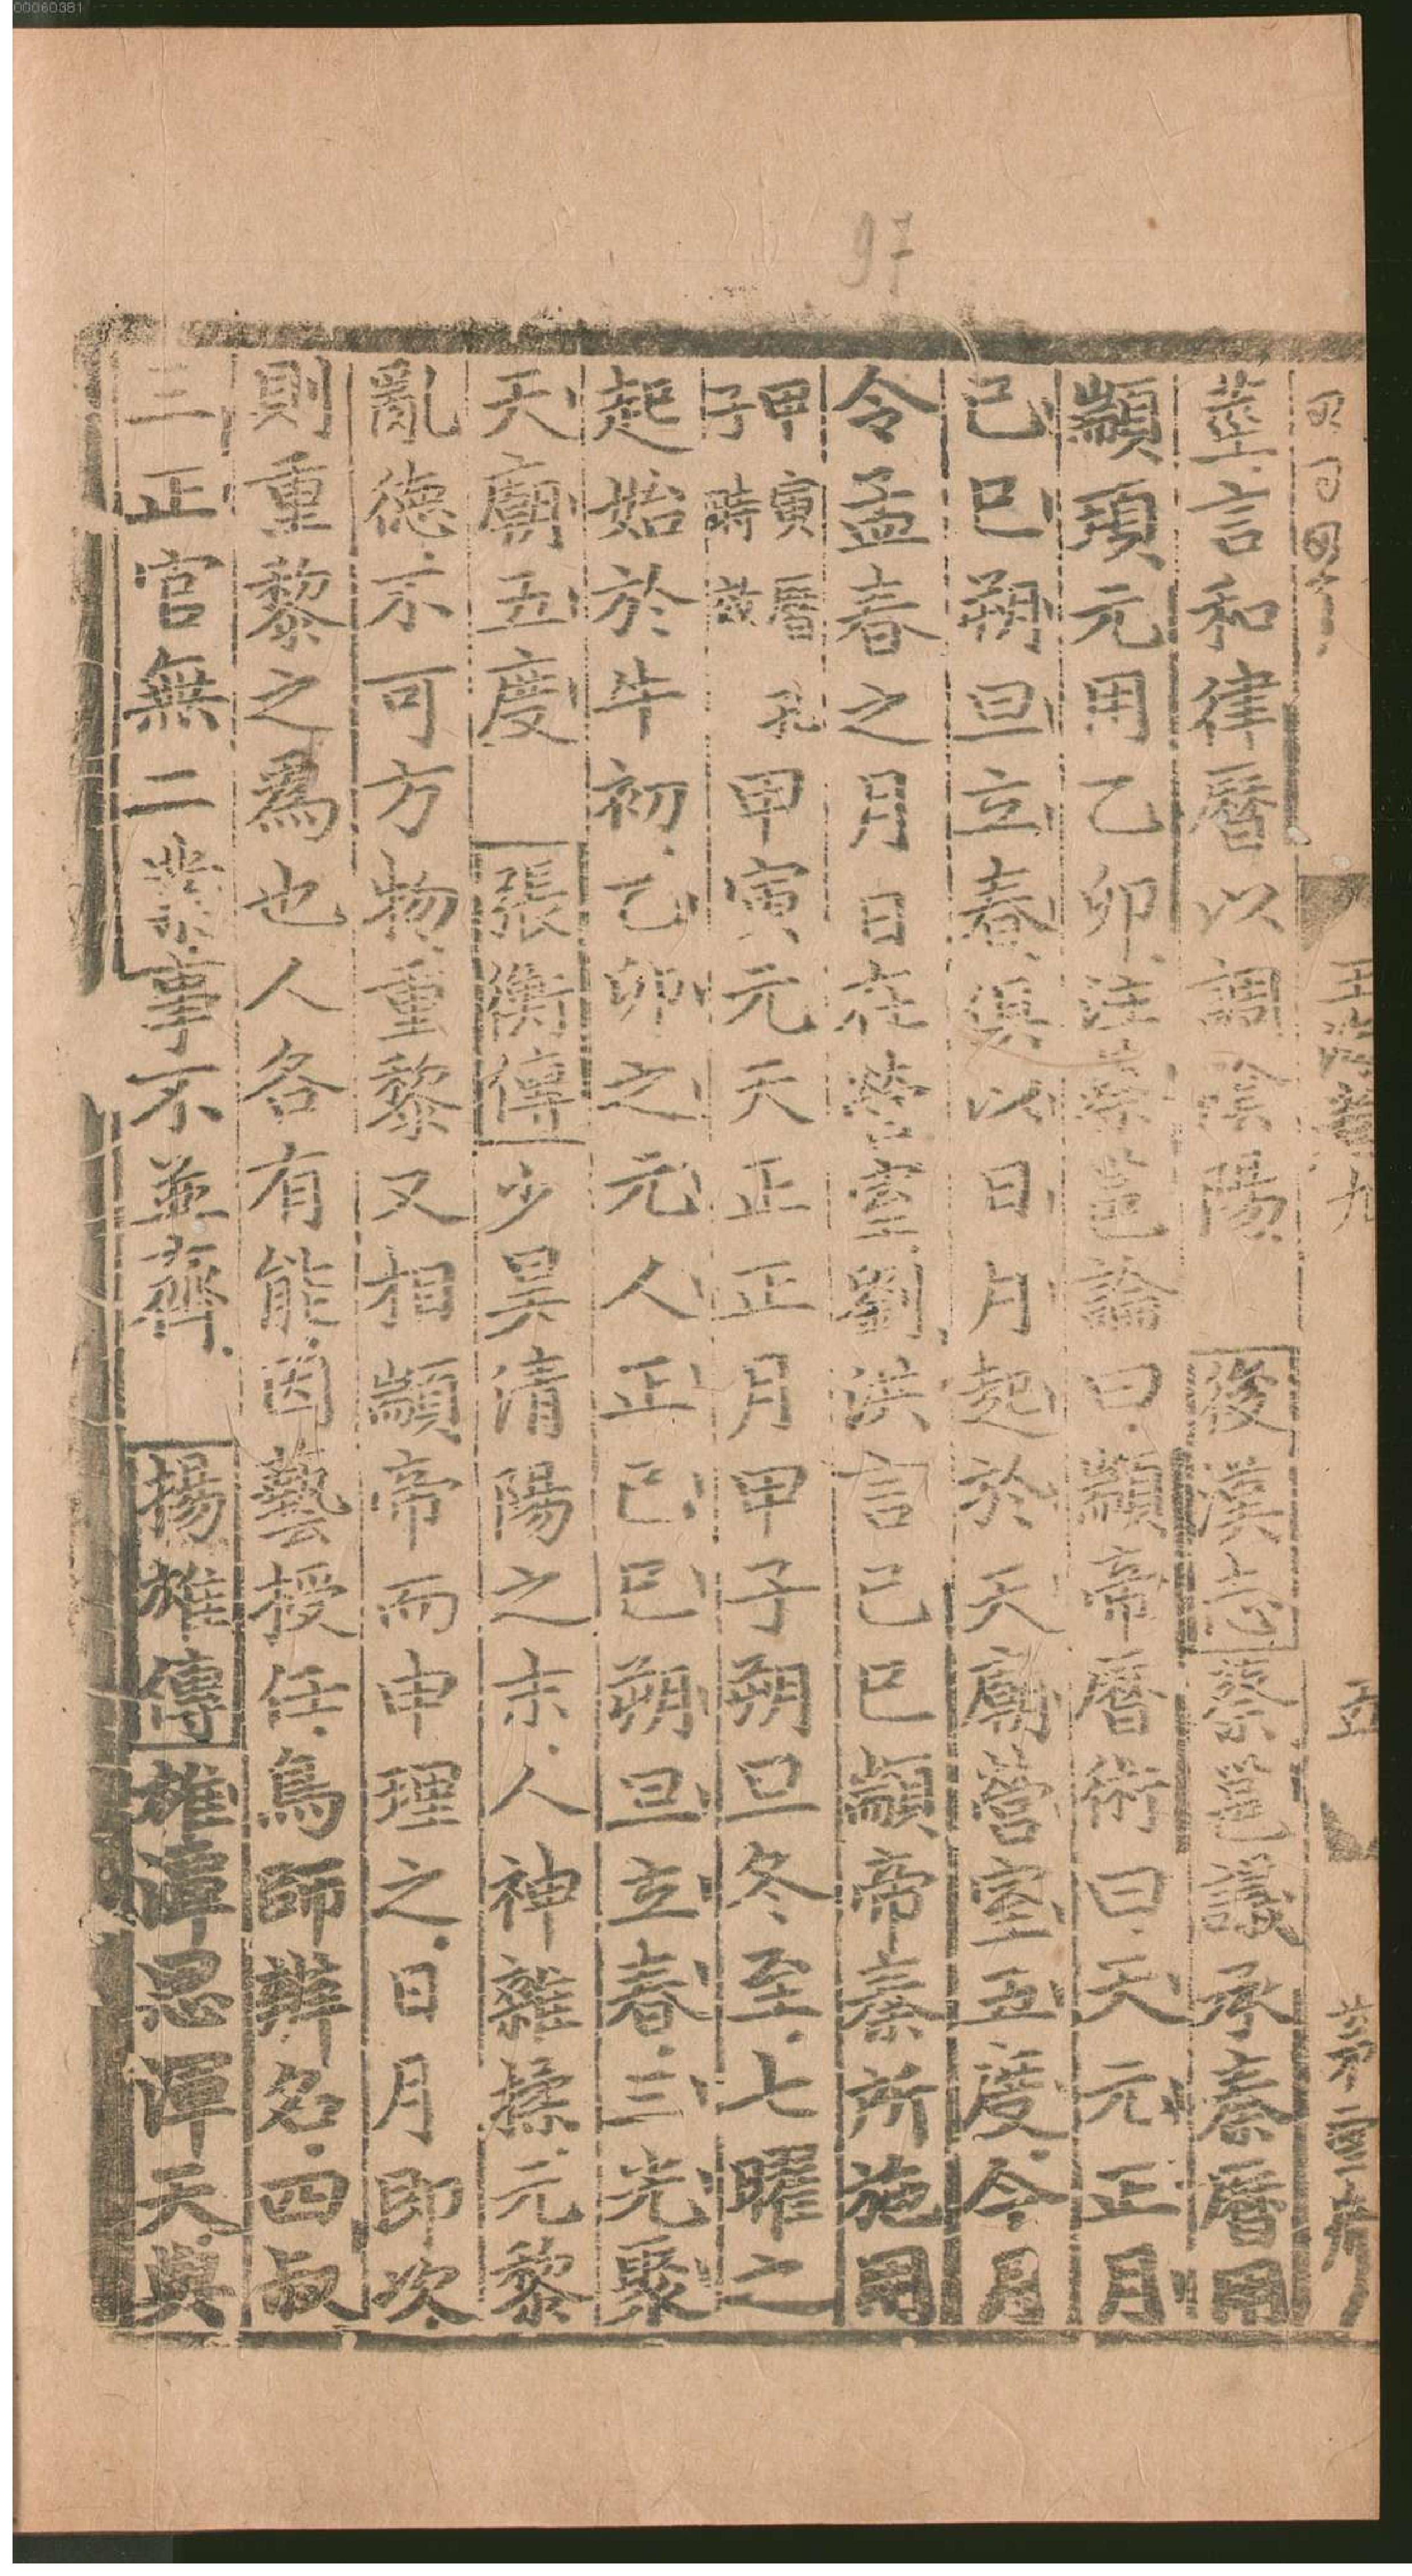 00060381
97
莖言和律曆以調陰陽 後漢志蔡邕議承秦曆用
顓頊元用乙卯注蔡邕論曰顓帝曆術曰天元正月
己巳朔旦立春俱以日月起於天廟營室五度今月
令孟春之月日在營室劉洪言己巳顓帝秦所施用
甲寅曆孔子時效 甲寅元天正正月甲子朔旦冬至七曜之
起始於牛初乙卯之元人正己巳朔旦立春三光聚
天廟五度 張衡傳少昊清陽之末人神雜揉元黎
亂德不可方物重黎又相顓帝而申理之日月即次
則重黎之爲也人各有能因藝授任鳥師辨名四叔
三正官無二業事不並齊 揚雄傳雄潭思渾天與